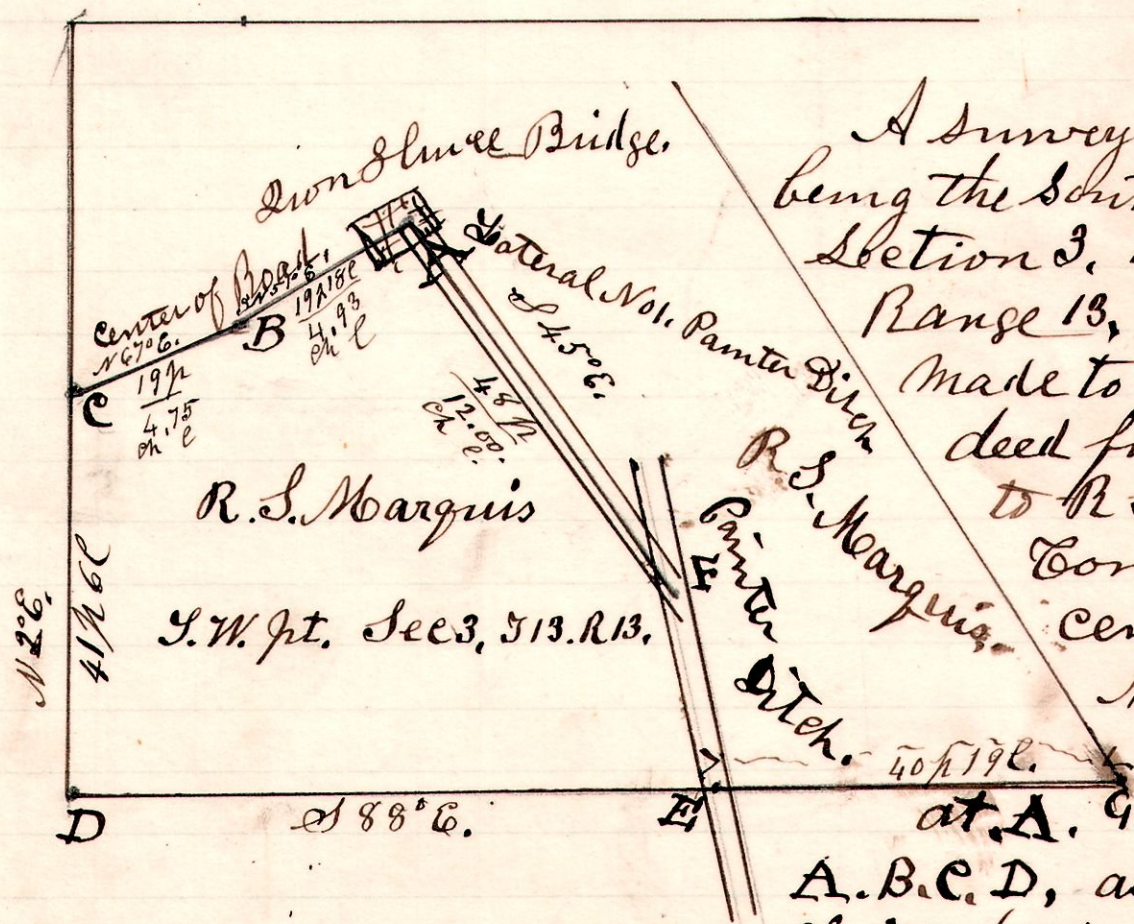 Iron Sluice Bridge.
Center of Road.
N 67° E.
19p
4.75
ch l
B
19p 18l
4.93
ch l
C
A
Lateral No 1. Painter Ditch
S 45° E.
48 p
12.00.
ch l.
R. S. Marquis
S. W. pt. Sec 3, T 13. R 13.
N 2° E.
41p 6l
R. S. Marquis.
F
Painter Ditch.
40p 19l.
D
S 88° E.
E
G
A survey
being the Sout
Section 3,
Range 13,
made to
deed f
to R
Con
cen
at A.
A. B. C. D, a